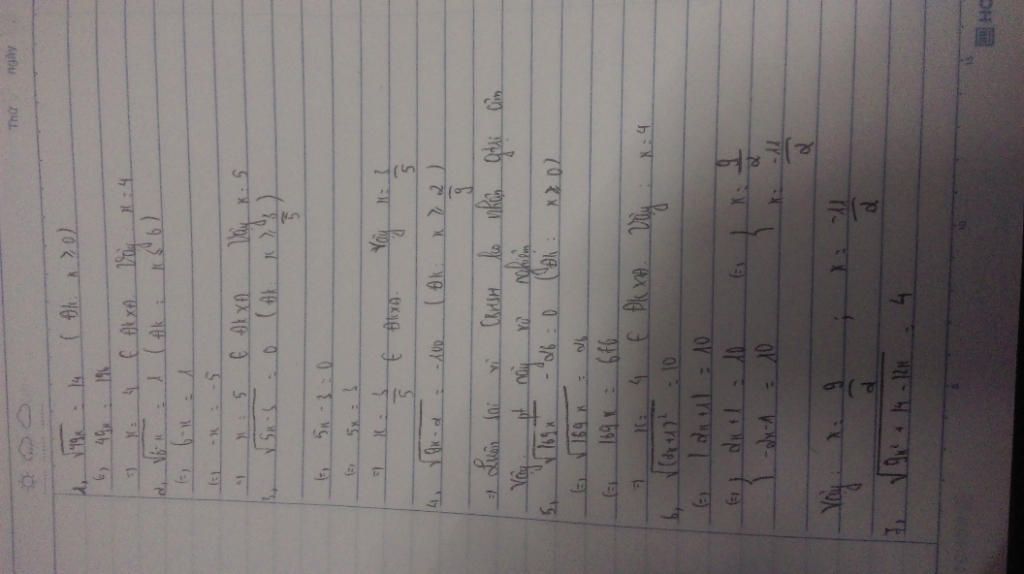 Thứ ngày
1, √49x = 14 (Đk x ≥ 0)
(=) 49x = 196
=) x = 4 ∈ ĐkXĐ Vậy x = 4
2, √6-x = 1 (Đk = x ≤ 6)
(=) 6-x = 1
(=) -x = -5
=) x = 5 ∈ ĐkXĐ Vậy x = 5
3, √5x-3 = 0 (Đk x ≥ 3/5)
(=) 5x - 3 = 0
(=) 5x = 3
=) x = 3/5 ∈ ĐkXĐ. Vậy x = 3/5
4, √9x-2 = -100 (Đk: x ≥ 2/9)
=) vì CBHSH ko nhận giá
Vậy: pt này vô nghiệm
5, √169x - 26 = 0 (Đk: x ≥ 0)
(=) √169x = 26
(=) 169x = 676
=) x = 4 ∈ ĐkXĐ Vậy: x = 4
6, √(2x+1)² = 10
(=) |2x+1| = 10
(=) { 2x+1 = 10 (=) { x = 9/2
{ -2x-1 = 10 { x = -11/2
Vậy: x = 9/2 ; x = -11/2
7, √9x² + 14 - 12x = 4
5 10 15
HO